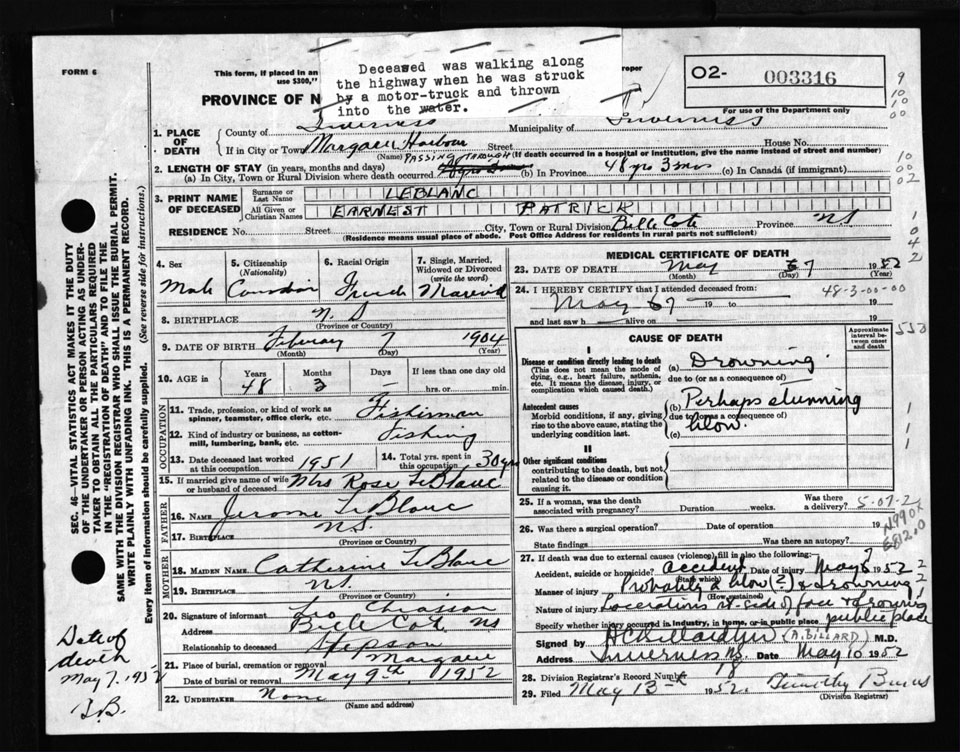 FORM 6
This form, if placed in an
use $300,"
PROVINCE OF N
Deceased was walking along
the highway when he was struck
by a motor-truck and thrown
into the water.
roper
02- 003316
For use of the Department only
1. PLACE OF DEATH
County of Inverness Municipality of Inverness
If in City or Town Margaree Harbour Street House No.
(Name) (If death occurred in a hospital or institution, give the name instead of street and number)
2. LENGTH OF STAY (in years, months and days)
(a) In City, Town or Rural Division where death occurred PASSING THROUGH (b) In Province 48 yrs 3 mos (c) In Canada (if immigrant)
3. PRINT NAME OF DECEASED
Surname or Last Name LEBLANC
All Given or Christian Names EARNEST PATRICK
RESIDENCE No. Street City, Town or Rural Division Belle Cote Province NS
(Residence means usual place of abode. Post Office Address for residents in rural parts not sufficient)
4. Sex
Male
5. Citizenship (Nationality)
Canadian
6. Racial Origin
French
7. Single, Married, Widowed or Divorced (write the word)
Married
8. BIRTHPLACE N. S
(Province or Country)
9. DATE OF BIRTH February 7 1904
(Month) (Day) (Year)
10. AGE in
Years 48
Months 3
Days —
If less than one day old
hrs. or min.
OCCUPATION
11. Trade, profession, or kind of work as spinner, teamster, office clerk, etc. Fisherman
12. Kind of industry or business, as cotton-mill, lumbering, bank, etc. Fishing
13. Date deceased last worked at this occupation 1951
14. Total yrs. spent in this occupation 30 yrs
15. If married give name of wife or husband of deceased Mrs Rose LeBlanc
FATHER
16. NAME Jerome LeBlanc
17. BIRTHPLACE NS.
(Province or Country)
MOTHER
18. MAIDEN NAME Catherine LeBlanc
19. BIRTHPLACE NS.
(Province or Country)
20. Signature of informant Leo Chiasson
Address Belle Cote NS
Relationship to deceased Stepson
21. Place of burial, cremation or removal Margaree
Date of burial or removal May 9th 1952
22. UNDERTAKER None
(Name and Address)
MEDICAL CERTIFICATE OF DEATH
23. DATE OF DEATH May 7 1952
(Month) (Day) (Year)
24. I HEREBY CERTIFY that I attended deceased from: 48-3-00-00
May 7 19 to 19
and last saw h alive on 19
CAUSE OF DEATH
Approximate interval between onset and death
I
Disease or condition directly leading to death
(This does not mean the mode of dying, e.g., heart failure, asthenia, etc. It means the disease, injury, or complication which caused death.)
(a) Drowning
due to (or as a consequence of)
Antecedent causes
Morbid conditions, if any, giving rise to the above cause, stating the underlying condition last.
(b) Perhaps stunning
due to (or as a consequence of)
blow.
(c)
II
Other significant conditions
contributing to the death, but not related to the disease or condition causing it.
25. If a woman, was the death associated with pregnancy? Duration weeks. Was there a delivery? 5-07-2
26. Was there a surgical operation? Date of operation 19
State findings Was there an autopsy?
27. If death was due to external causes (violence), fill in also the following:
Accident, suicide or homicide? accident Date of injury May 7 1952
(State which)
Manner of injury Probably a blow (?) & drowning
(How sustained)
Nature of injury Lacerations rt-side of face & drowning
Specify whether injury occurred in industry, in home, or in public place public place
Signed by (A. BILLARD) M.D.
Address Inverness NS Date May 10 1952
28. Division Registrar's Record Number 18
29. Filed May 13th 1952. Timothy Burns
(Division Registrar)
SEC. 46—VITAL STATISTICS ACT MAKES IT THE DUTY
OF THE UNDERTAKER OR PERSON ACTING AS UNDER-
TAKER TO OBTAIN ALL THE PARTICULARS REQUIRED
IN THE "REGISTRATION OF DEATH" AND TO FILE THE
SAME WITH THE DIVISION REGISTRAR WHO SHALL ISSUE THE BURIAL PERMIT.
WRITE PLAINLY WITH UNFADING INK. THIS IS A PERMANENT RECORD.
Every item of information should be carefully supplied. (See reverse side for instructions.)
Date of
death
May 7. 1952